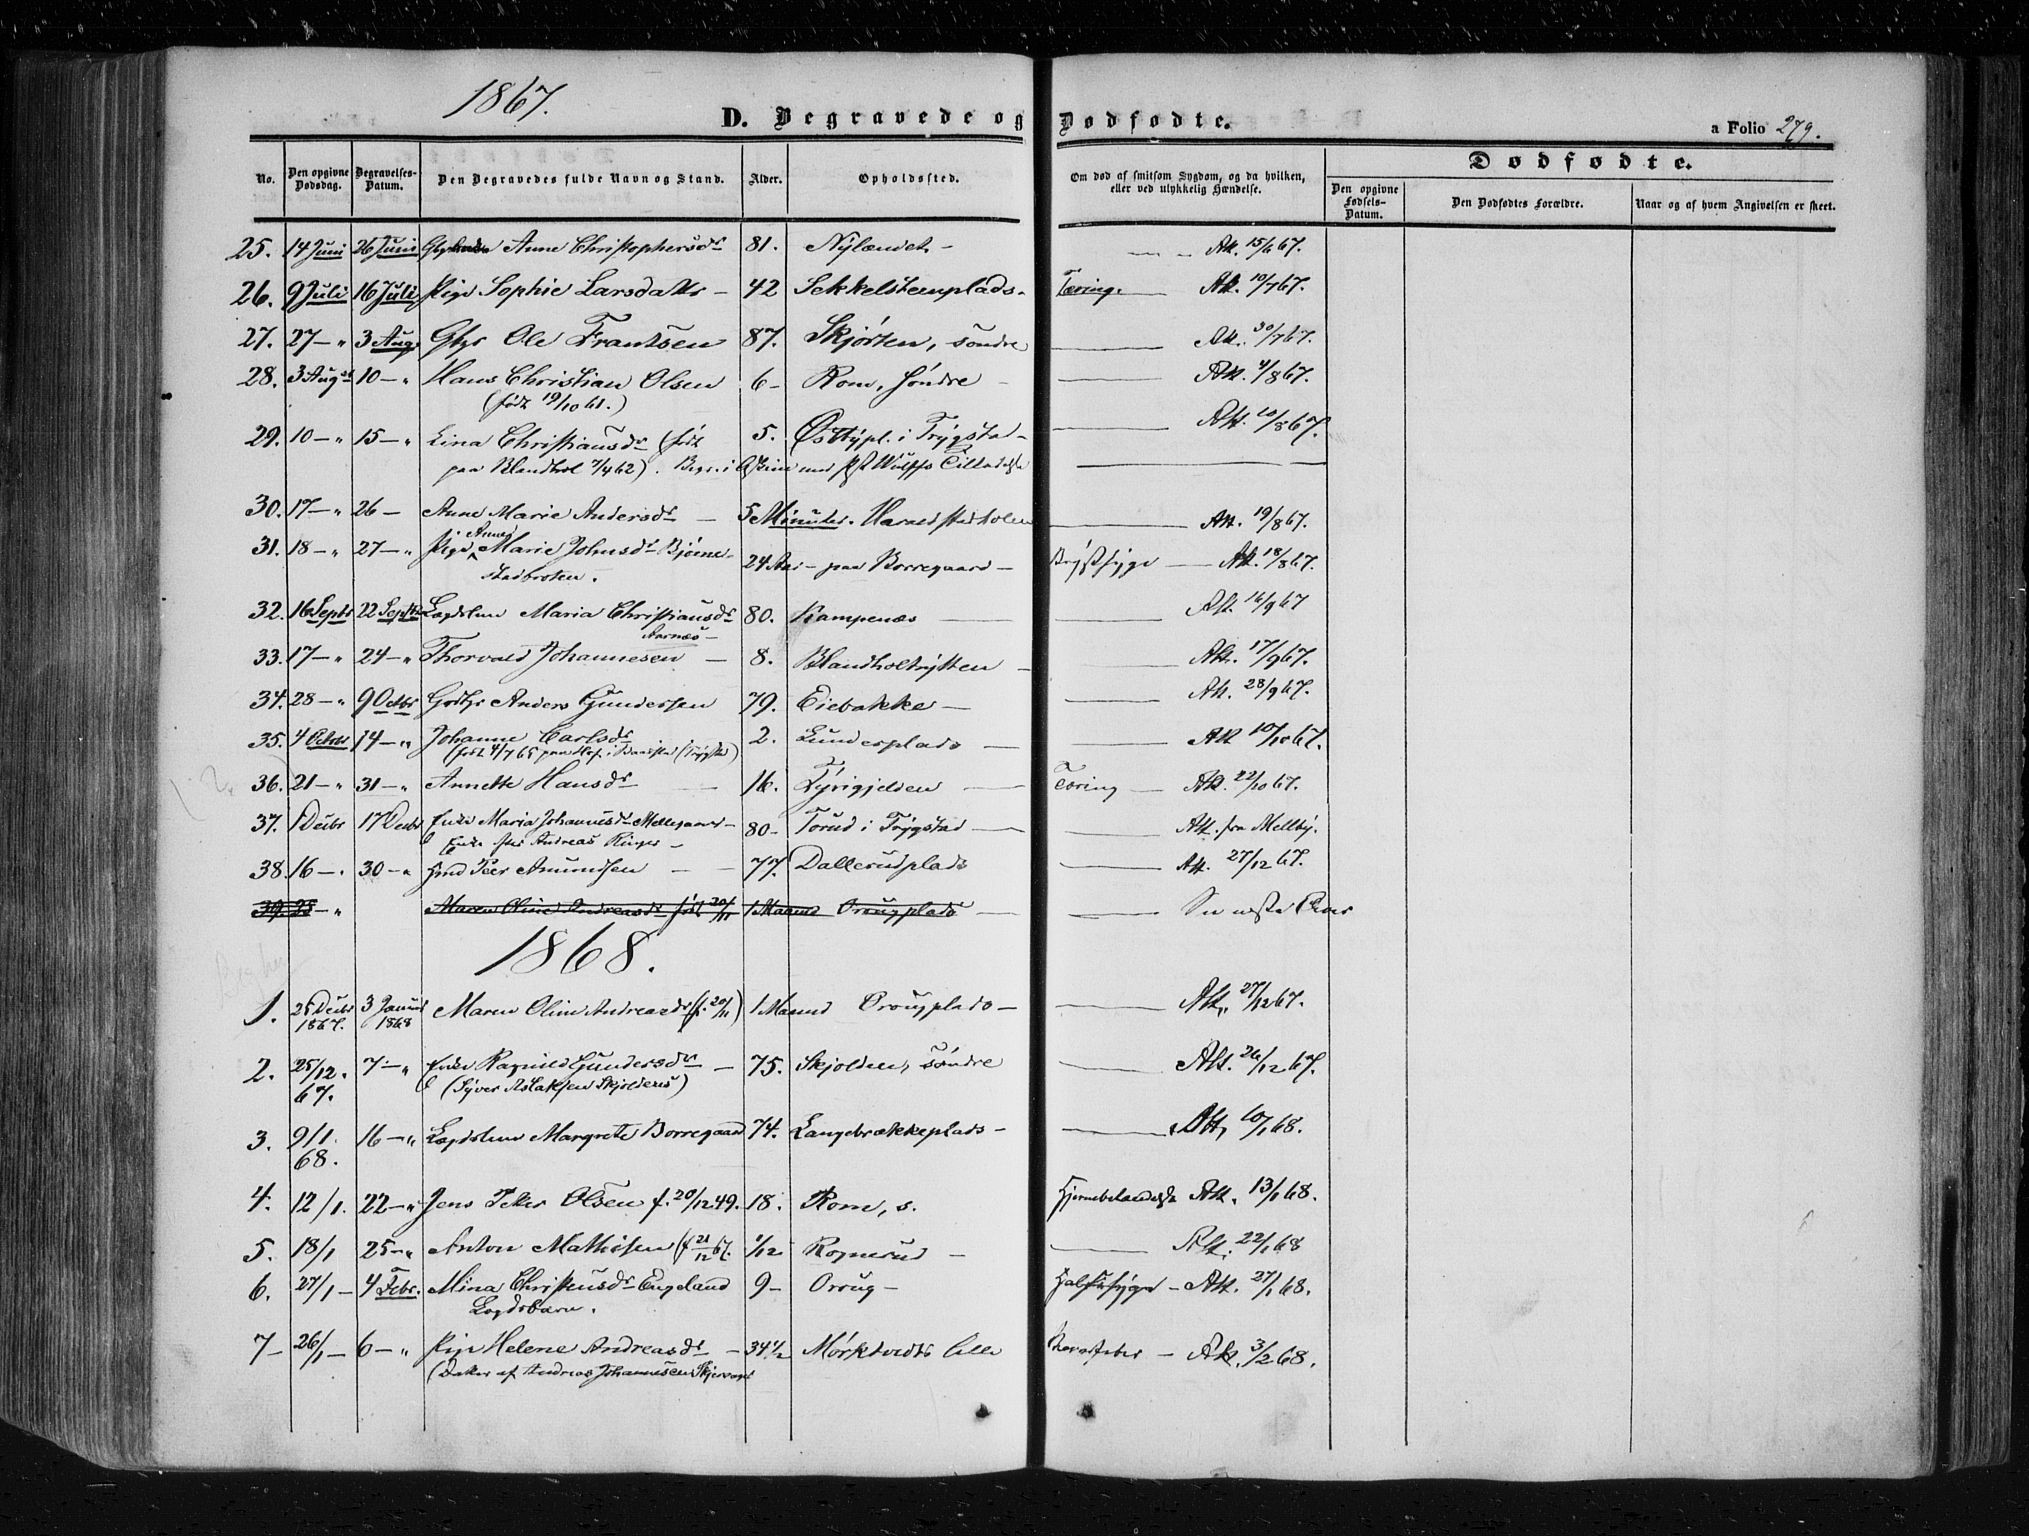 1867.
D. Begravede og Dødfødte.
a Folio 279.
No. Den opgivne Dødsdag. Begravelses-Datum. Den Begravedes fulde Navn og Stand. Alder. Opholdssted. Om død af smitsom Sygdom, og da hvilken, eller ved ulykkelig Hændelse. Dødfødte. Den opgivne Fødsels-Datum. Den Dødfødtes Forældre. Naar og af hvem Angivelsen er skeet.
25. 14 Juni 26 Juni Anne Christophersdr 81. Nylændet - Att. 15/6 67.
26. 9 Juli 16 Juli Pige Sophie Larsdatter - 42 Sekkelstenplads. Tæring. Att. 10/7 67.
27. 27 - " 3 Aug. Gbgr Ole Frantzsen 87. Skjørten, søndre Att. 30/7 67.
28. 3 August 10 - " Hans Christian Olsen 6 - Rom, søndre - Att. 4/8 67.
(født 19/10 61.)
29. 10 - " 15 - " Lina Christiansdr (født 5. Østbypl. i Trygstad - Att. 10/8 67.
paa Blandhol 7/4 62). Begr. i Askim med Pst Wulffs Tilladelse
30. 17 - " 26 - Anne Marie Andersdr - 5 Minuter. Haraldstadholen Att. 19/8 67.
31. 18 - " 27 - " Pige Anne Marie Johnsdr Bjørne- 24 Aar - paa Borregaard - Brystsyge - Att. 18/8 67.
stadbroten.
32. 16 Septbr 22 Septbr Lægdslem Maria Christiansdr 80. Kampenæs Att. 16/9 67
Aarnæs -
33. 17 - " 24 - " Thorvald Johannesen - 8. Blandholtrytten - Att. 17/9 67.
34. 28 - " 9 Octbr Anders Gundersen 79. Eiebakke - Att. 28/9 67.
35. 4 Octobr 14 - " Johanne Carlsdr 2. Lundesplads - Att 10/10 67.
(født 4/7 65 paa i Trygstd)
36. 21 - " 31 - " Annette Hansdr - - 16. Tyrigjelden - Tæring - Att. 22/10 67.
37. 1 Decbr 17 Decbr Enke Maria Johannesdr Mellegaard - 80 - Torud i Trygstad - Att. fra Mellby.
Enke efter Andreas Ringer -
38. 16 - . 30 - " Peer Amundsen - - 77. Dallerudplads Att. 27/12 67.
39. 25 - " Maren Oline Andreasdr født 20/11 1 Maaned Orougplads - See næste Aar
1868.
1. 25 Decbr 1867. 3 Januar 1868 Maren Oline Andreasdr (f. 20/11) 1 Maaned Orougplads - Att. 27/12 67.
2. 25/12 67. 7 - " Enke Ragnild Gundersdr - 75. Skjolden, søndre Att. 26/12 67.
(Syver Aslaksen Skjoldens)
3. 9/1 68. 16 - " Lægdslem Margrete Borregaard 74. Langebrækkeplads - Att. 10/1 68.
4. 12/1. 22 - " Jens Peter Olsen f. 20/12 49. 18. Rom, s. Hjernebetændelse Att. 13/1 68.
5. 18/1 25 - " Anton Mathisen (f 21/12 67. 1/12 Rognerud - Att. 22/1 68
6. 27/1 - 4 Febr. Mina Christensdr Engeland 9 - Oroug - Halssyge - Att. 27/1 68.
Lægdsbarn.
7 - 26/1 - 6 - " Pige Helene Andreasdr - 34 1/2 Mørktvedts lille Nervefeber - Att. 3/2 68.
(Datter af Andreas Johannesen